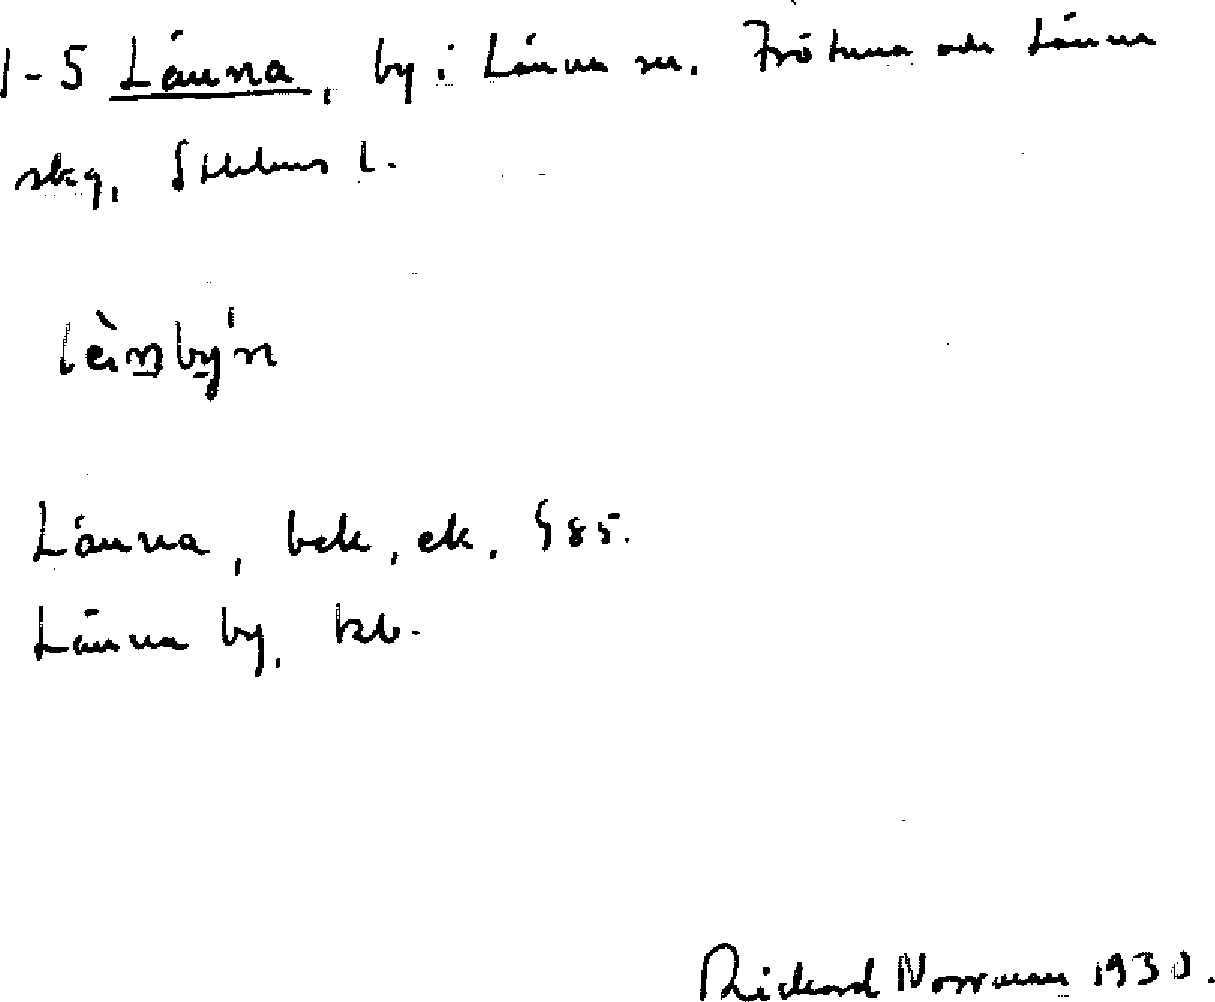 1-5 Länna, by i Länna sn. Frötuna och Länna
skg, Sthlms l.
lèm̲bý̲n
Länna, bek, ek. § 85.
Länna by, kb.
Rickard Norrman 1930.